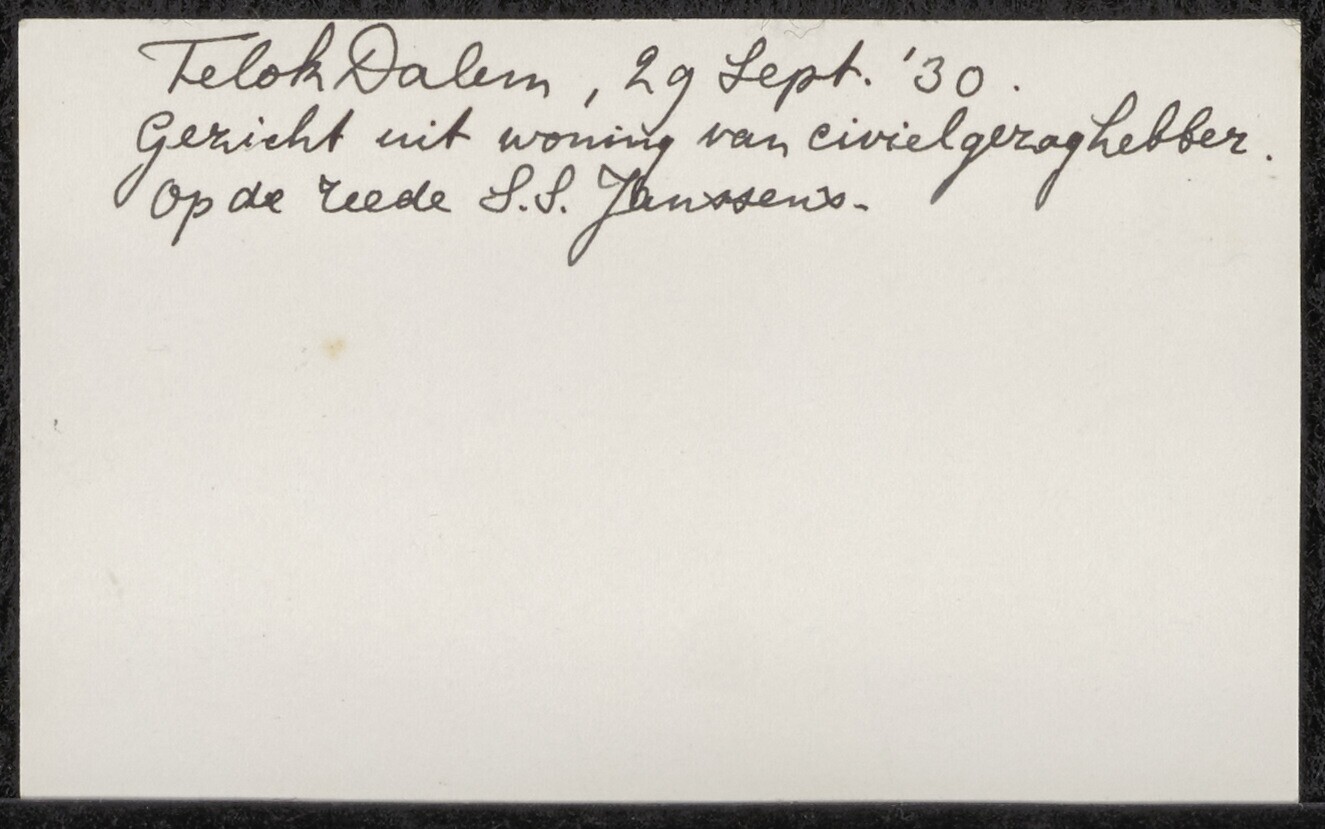 Telok Dalem, 29 Sept. '30.
Gezicht uit woning van civielgezaghebber.
Op de reede S.S. Janssens.